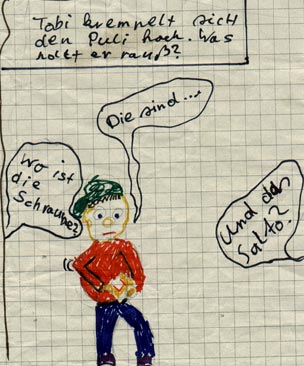 Tobi krempelt sich
den Puli hoch. Was
hollt er rauß?
Die sind...
Wo ist
die
Schraube?
Und das
Salto?